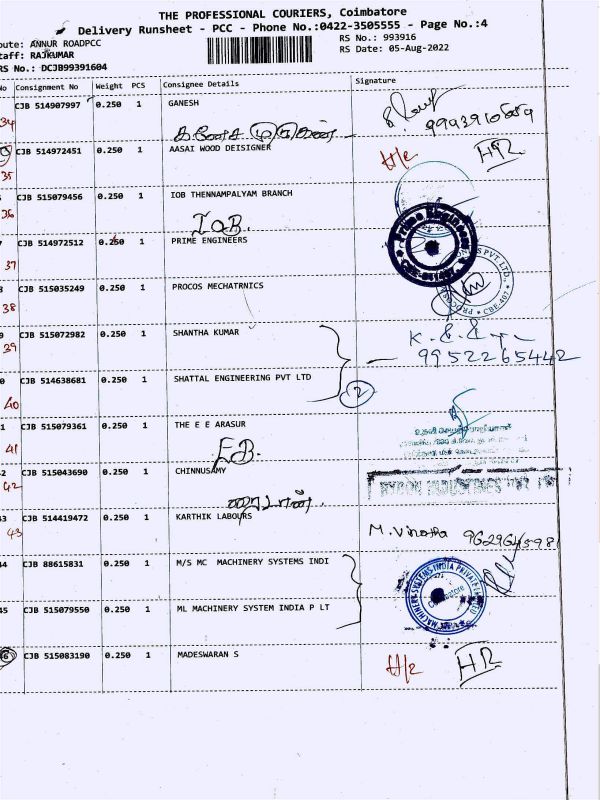 THE PROFESSIONAL COURIERS, Coimbatore
Delivery Runsheet - PCC - Phone No.:0422-3505555 - Page No.:4
oute: ANNUR ROADPCC RS No.: 993916
taff: RAJKUMAR RS Date: 05-Aug-2022
RS No.: DCJB99391604
No Consignment No Weight PCS Consignee Details Signature
34 CJB 514907997 0.250 1 GANESH
35 CJB 514972451 0.250 1 AASAI WOOD DEISIGNER H/c HR
36 CJB 515079456 0.250 1 IOB THENNAMPALYAM BRANCH
IOB.
37 CJB 514972512 0.250 1 PRIME ENGINEERS Prime Engineers
38 CJB 515035249 0.250 1 PROCOS MECHATRNICS PVT. LTD.
39 CJB 515072982 0.250 1 SHANTHA KUMAR
9952265442
40 CJB 514638681 0.250 1 SHATTAL ENGINEERING PVT LTD 2
41 CJB 515079361 0.250 1 THE E E ARASUR
EB.
42 CJB 515043690 0.250 1 CHINNUSAMY
43 CJB 514419472 0.250 1 KARTHIK LABOURS M. Vinotha 9629645981
44 CJB 88615831 0.250 1 M/S MC MACHINERY SYSTEMS INDI
MACHINERY SYSTEMS INDIA PRIVATE LIMITED Coimbatore
45 CJB 515079550 0.250 1 ML MACHINERY SYSTEM INDIA P LT
46 CJB 515083190 0.250 1 MADESWARAN S H/c HR